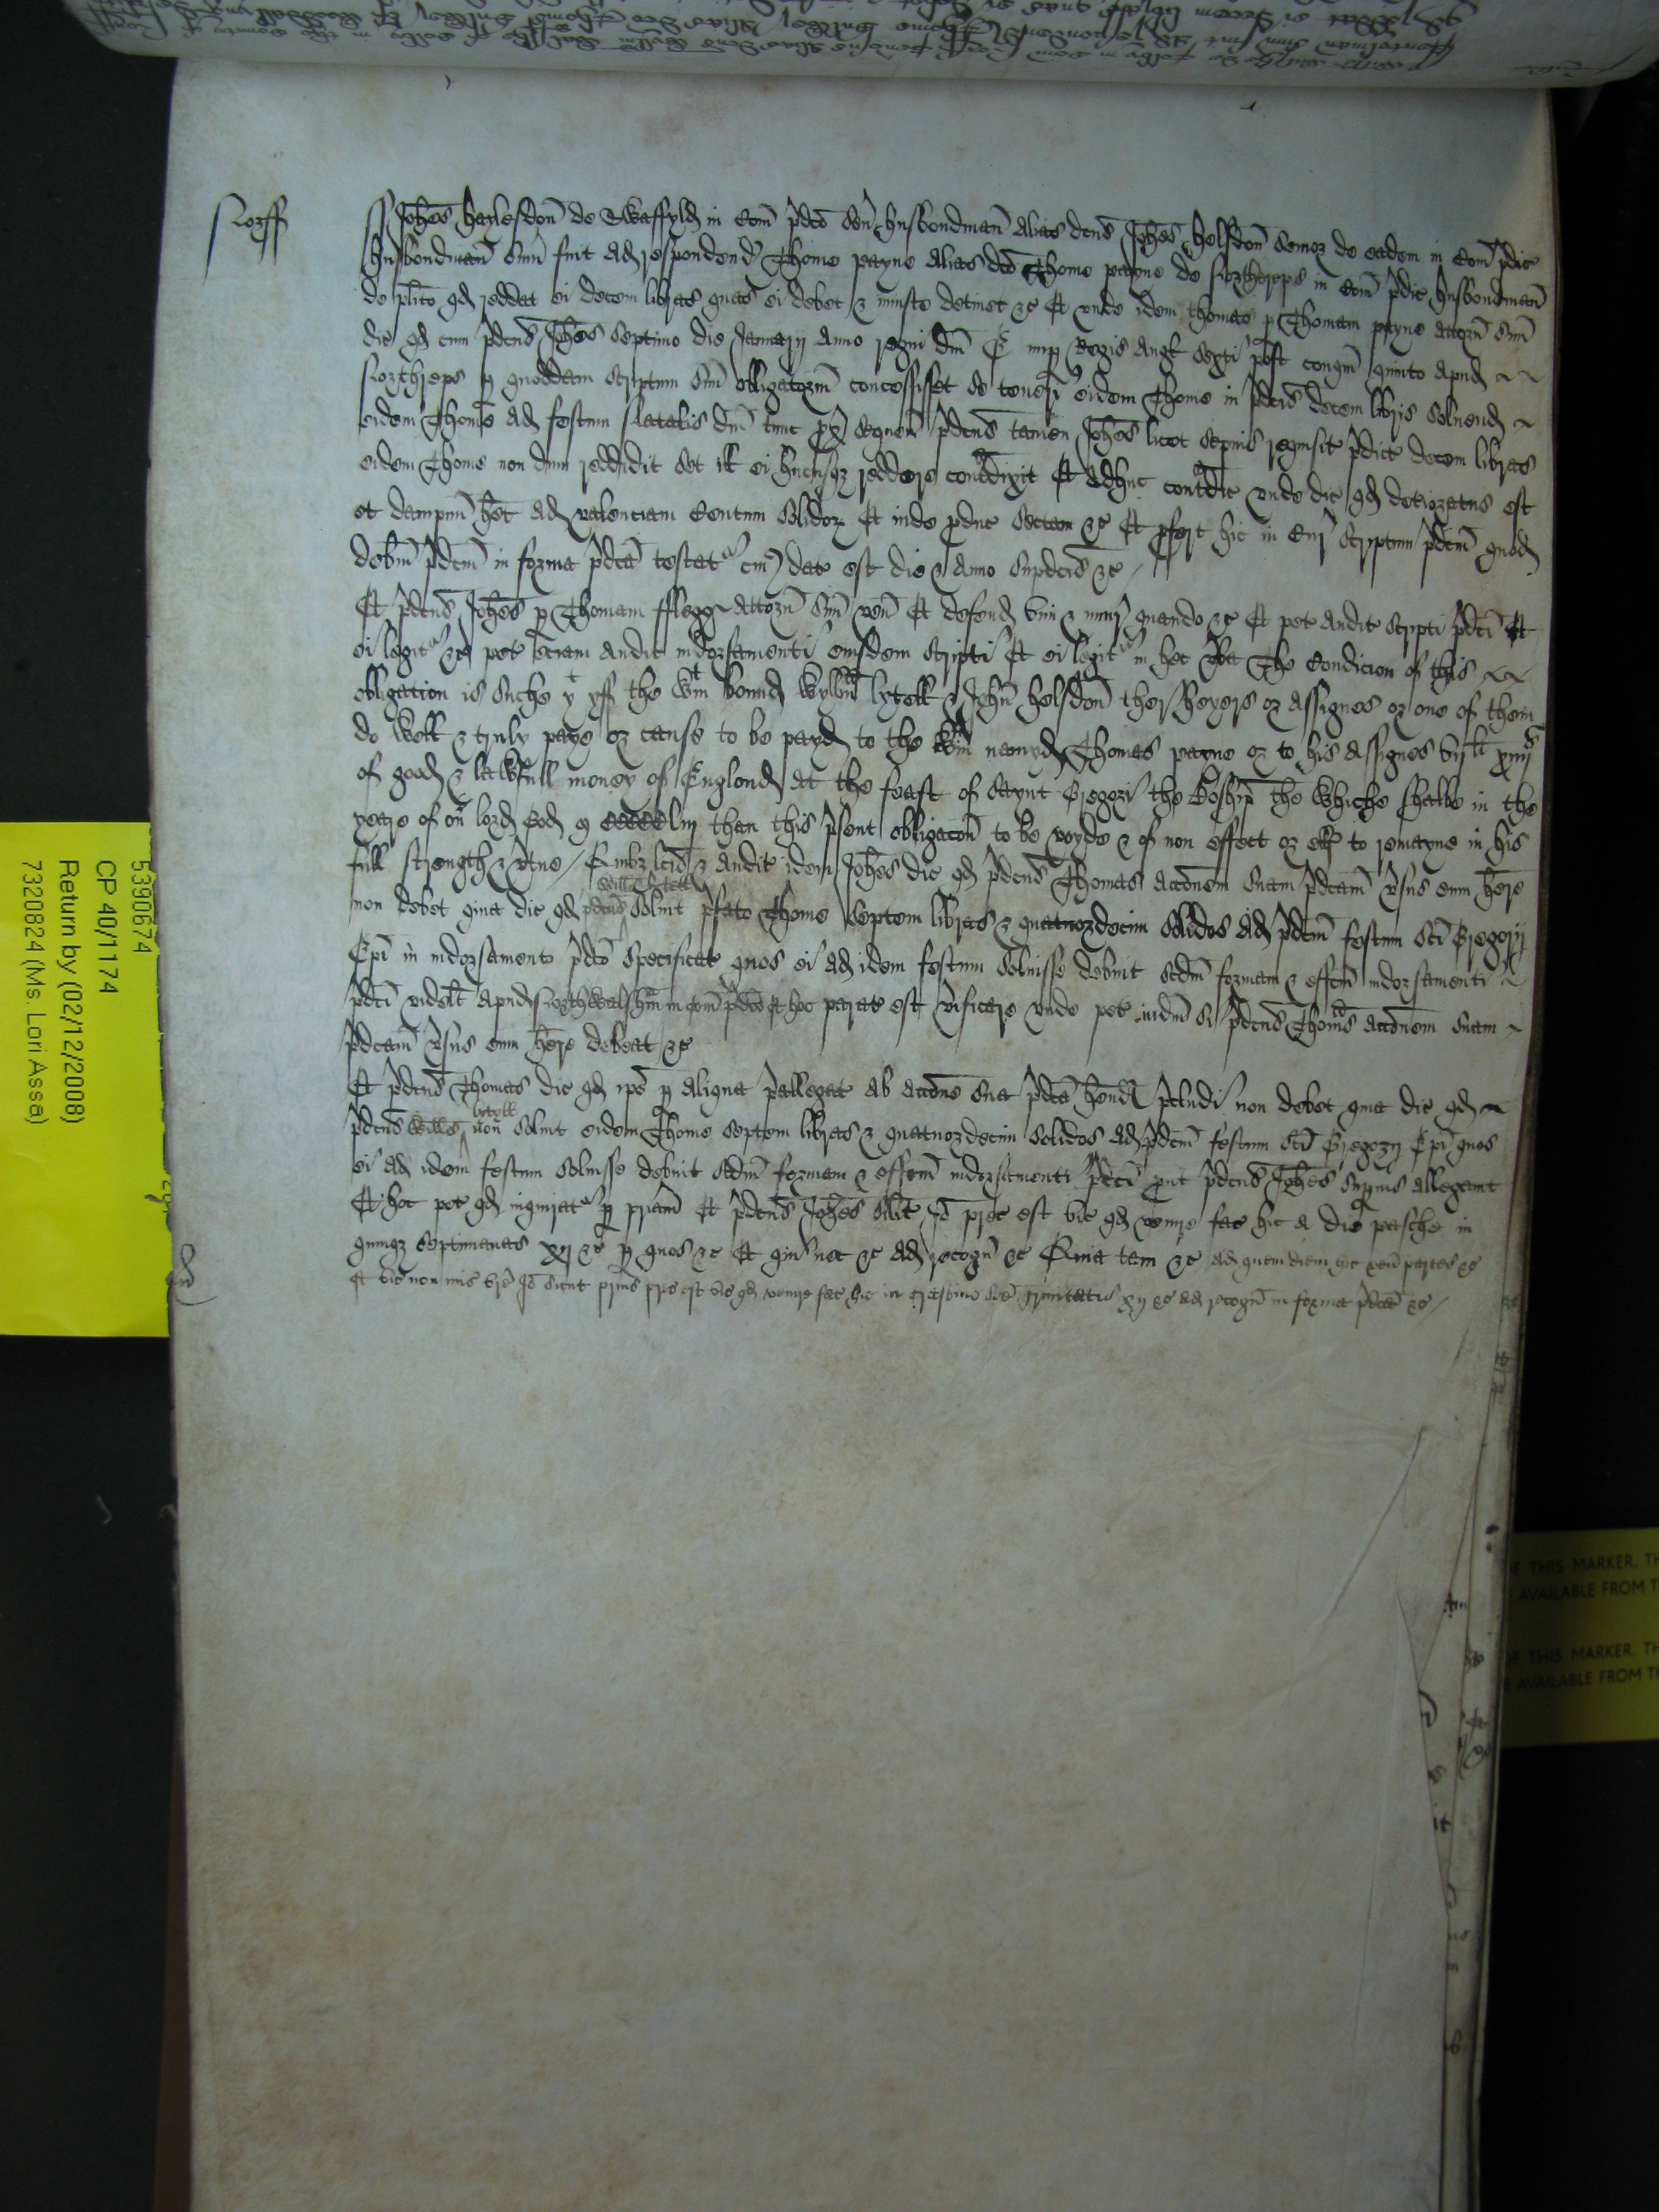 Norff
Johes Haylesdon de Swaffyld in Com pdco sen husbondman alias dcus Johes Helsdon senior de eadem in Com pdic
husbondman sum fuit ad respondend Thome Payne alias dco Thome Payne de Northreps in Com pdic husbondman
de plito qd reddat ei decem libras quas ei debet & iniuste detinet &c Et unde idem Thomas p Thomam Payne attorn suum
dic qd cum pdcus Johes septimo die Januarij anno regni dni E nup Regis Angl sexti post conqm quinto apud
Northreps p quoddam scriptum suum obligatorium concessisset se teneri eidem Thome in pdcis decem libris solvend
eidem Thome ad festum Natalis dni tunc px sequen pdcus tamen Johes licet sepius requisit pdict decem libras
eidem Thome non dum reddidit set ill ei hucusqz reddere contradixit Et adhuc contradic unde dic qd deterioratus est
et dampnu het ad valenciam Centum solidoz Et inde pduc sectam &c Et pfert hic in Cur scriptum pdcm quod
debm pdcm in forma pdca testat cui dat est die & anno supdcis &c
Et pdcus Johes p Thomam Flegg attorn suum ven Et defend vim & iniur quando &c Et pet audit scripti pdci Et
ei legit &c pet eciam audit indorsamenti eiusdem scripti Et ei legit in hec vba The Condicion of this
obligation is suche yt yf the wtin bound Wyllm Lytell & John Helsdon ther heyers or assignes or one of them
do well & truly paye or cause to be payd to the wtin namyd Thomas Payne or to his assignes vij li xiiij s
of good & lawfull money of Englond at the feast of Saynt Gregori the Boship the whiche shalbe in the
yeare of our lord God m CCCCC liij than this psent obligacon to be voyde & of non effect or ell to remayne in his
full strength & vtue Quibz lcis & audit idem Johes dic qd pdcus Thomas accionem suam pdcam vsus eum here
non debet quia dic qd pdcus Will Lytell solvit pfato Thome septem libras & quatuordecim solidos ad pdcm festum Sci Gregorij
Epi in indorsamento pdco specificat quos ei ad idem festum solvisse debuit scdm formam & effcm indorsamenti
pdci videlt apud Northwalsham in com pdco & hoc parat est vificare unde pet iudm si pdcus Thomas accionem suam
pdcam vsus eum here debeat &c
Et pdcus Thomas dic qd ipe p aliqua pallegat ab accione sua pdca hend pcludi non debet quia dic qd
pdcus Willes Lytell non solvit eidem Thome septem libras & quatuordecim solidos ad pdcm festum Sci Gregorij Epi quos
ei ad idem festum solvisse debuit scdm formam & effcm indorsamenti pdci put pdcus Johes supius allegavit
Et hoc pet qd inquirat p priam Et pdcus Johes silit Io prec est vic qd venire fac hic a die pasche in
quinqz septimanas xij &c p quos &c Et qui nec &c ad recogn &c Quia tam &c ad quem diem hic ven partes &c
et vic non mis bre Io sicut prius prec est vic qd venire fac hic in crastino Sce Trinitatis xij &c ad recogn in forma pdca &c
5390674
CP 40/1174
Return by (02/12/2008)
7320824 (Ms. Lori Assa)
OF THIS MARKER. TH
AVAILABLE FROM T
OF THIS MARKER. TH
AVAILABLE FROM T